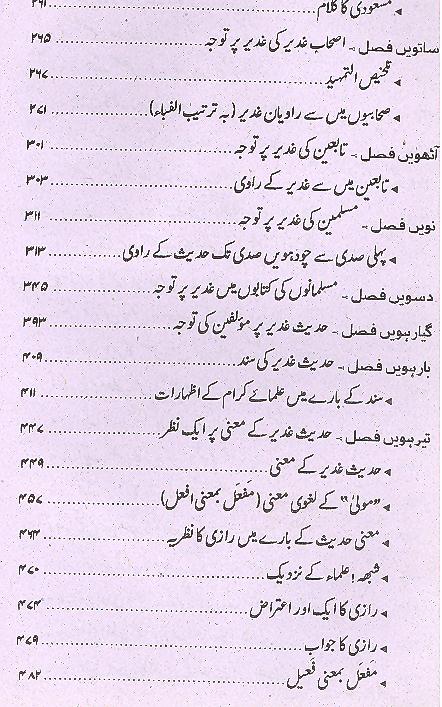 مسعودی کا کلام ........ ۲۶۱
ساتویں فصل۔ اصحاب غدیر کی غدیر پر توجہ ........ ۲۶۵
تلخیص التمہید ........ ۲۶۷
صحابیوں میں سے راویان غدیر (بہ ترتیب الفباء) ........ ۲۷۱
آٹھویں فصل۔ تابعین کی غدیر پر توجہ ........ ۳۰۱
تابعین میں سے غدیر کے راوی ........ ۳۰۳
نویں فصل۔ مسلمین کی غدیر پر توجہ ........ ۳۱۱
پہلی صدی سے چودہویں صدی تک حدیث کے راوی ........ ۳۱۳
دسویں فصل۔ مسلمانوں کی کتابوں میں غدیر پر توجہ ........ ۳۴۵
گیارہویں فصل۔ حدیث غدیر پر مؤلفین کی توجہ ........ ۳۹۳
بارہویں فصل۔ حدیث غدیر کی سند ........ ۴۰۹
سند کے بارے میں علمائے کرام کے اظہارات ........ ۴۱۱
تیرہویں فصل۔ حدیث غدیر کے معنی پر ایک نظر ........ ۴۴۷
حدیث غدیر کے معنی ........ ۴۴۹
”مولیٰ“ کے لغوی معنی (مَفعَل بمعنی افعل) ........ ۴۵۷
معنی حدیث کے بارے میں رازی کا نظریہ ........ ۴۶۴
شبھہ! علماء کے نزدیک ........ ۴۷۰
رازی کا ایک اور اعتراض ........ ۴۷۴
رازی کا جواب ........ ۴۷۹
مَفعَل بمعنی فَعیل ........ ۴۸۲